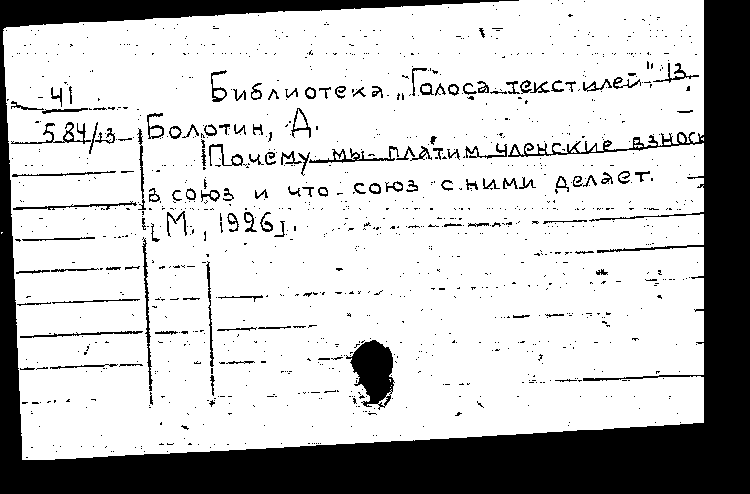 41
Библиотека „Голоса текстилей" 13
584/13 Болотин, Д.
Почему мы платим членские взносы
в союз и что союз с ними делает.
[М., 1926].